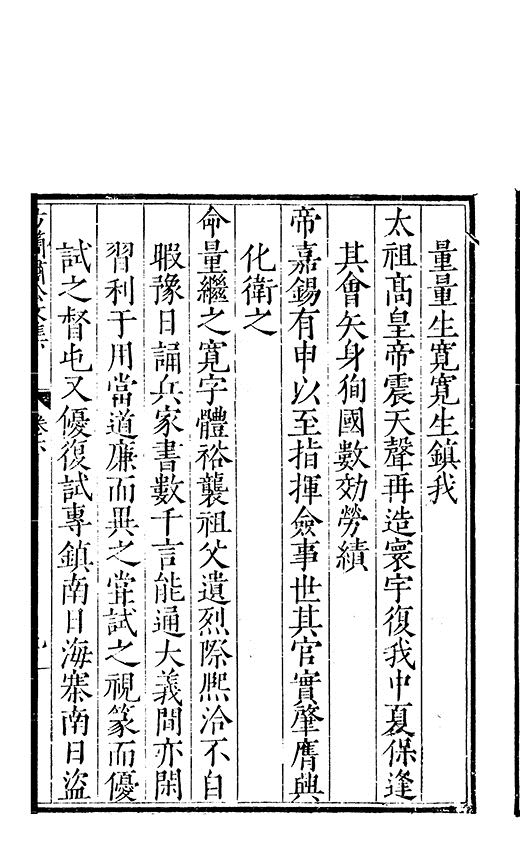 量量生寬寬生鎮我
太祖高皇帝震天聲再造寰宇復我中夏保逢
其會矢身徇國數効勞績
帝嘉錫有申以至指揮僉事世其官實肇膺興
化衛之
命量繼之寬字體裕襲祖父遺烈際熈洽不自
暇豫日誦兵家書數千言能通大義間亦閑
習利于用當道廉而異之甞試之視篆而優
試之督屯又優復試專鎮南日海寨南日盜
方簡肅公文集
卷六
九